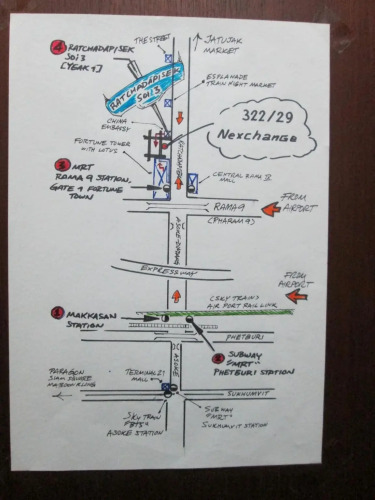 THE STREET
JATUJAK
MARKET
4 RATCHADAPISEK
SOI 3
[YEAK 1]
RATCHADAPISEK
SOI 3
ESPLANADE
TRAIN NIGHT MARKET
CHINA
EMBASSY
322/29
Nexchange
FORTUNE TOWER
WITH LOTUS
RATCHADAPISEK
3 MRT
RAMA 9 STATION,
GATE 1 FORTUNE
TOWN
CENTRAL RAMA IX
MALL
FROM
AIRPORT
RAMA 9
(PHARAM 9)
ASOKE-DINDAENG
EXPRESSWAY
FROM
AIRPORT
(SKY TRAIN)
AIR PORT RAIL LINK
1 MAKKASAN
STATION
PHETBURI
ASOKE
2 SUBWAY
"MRT"
PHETBURI STATION
PARAGON
SIAM SQUARE
MABOONKLONG
TERMINAL 21
MALL
SUKHUMVIT
SKY TRAIN
"BTS"
ASOKE STATION
SUBWAY
"MRT"
SUKHUMVIT STATION